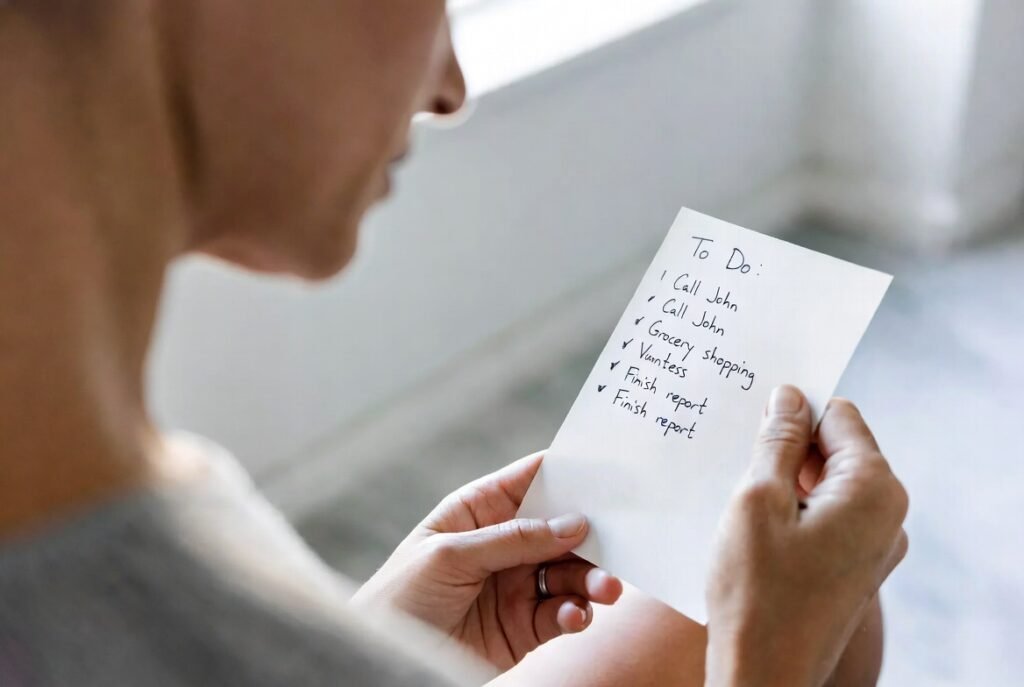 To Do:
Call John
Call John
✓ Grocery shopping
✓ Vuntess
✓ Finish report
✓ Finish report